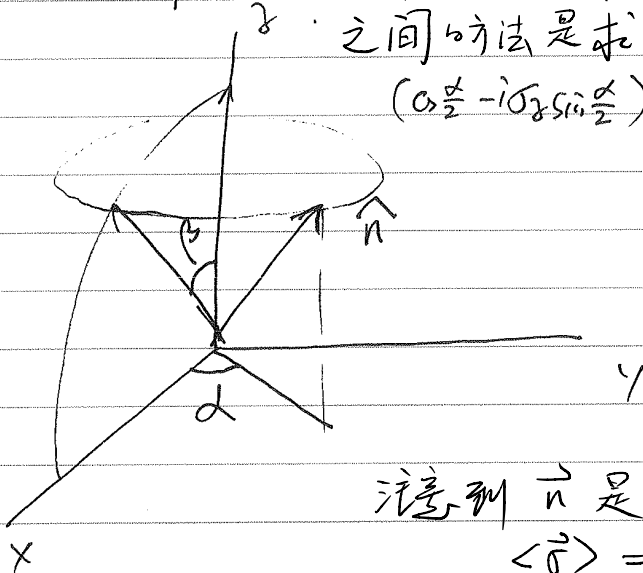 z . 之间的方法是求
(cos α/2 - iσz sin α/2)
β
n̂
y
α
x
注意到 n⃗ 是
<σ⃗> =